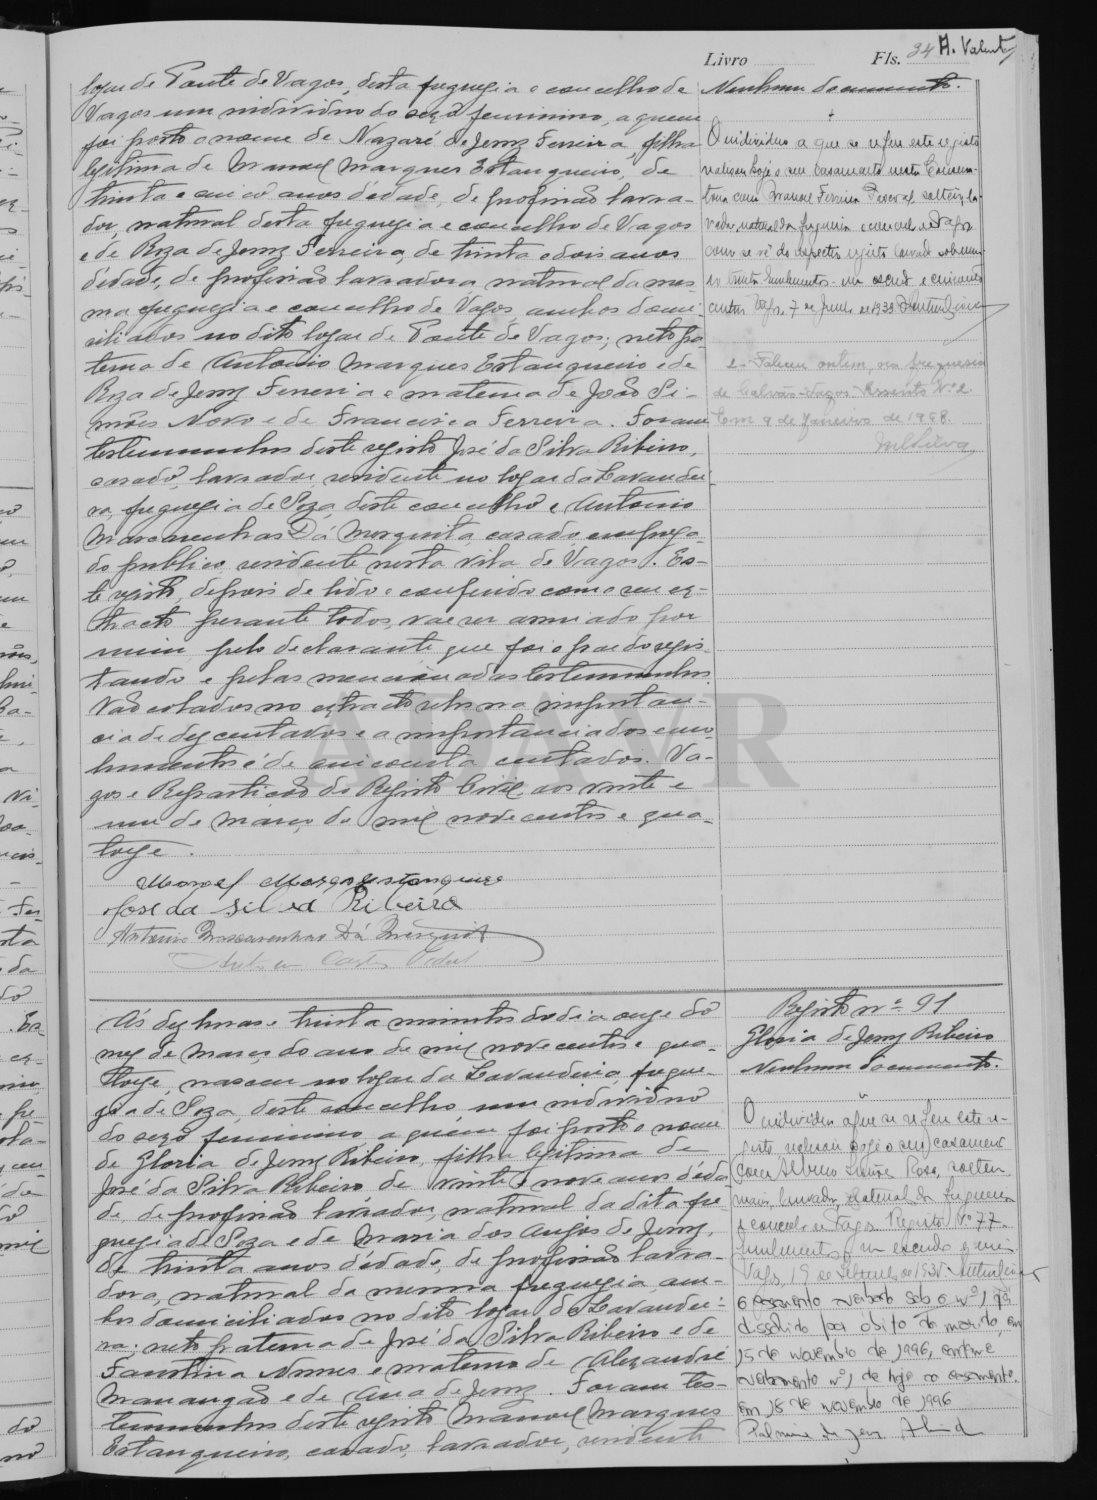 Livro Fls. 34 A. Valente
logar de Ponte de Vagos, desta freguesia e concelho de
Vagos um individuo do sexo feminino, a quem
foi posto o nome de Nazaré de Jesus Ferreira, filha
legitima de Manoel Marques Estanqueiro, de
trinta e cinco anos d'edade, de profissão lavra-
dor, natural desta freguesia e concelho de Vagos
e de Roza de Jesus Ferreira, de trinta e dois anos
d'edade, de profissão lavradora, natural da mes-
ma freguesia e concelho de Vagos, ambos domi-
ciliados no dito logar de Ponte de Vagos; neto pa-
terna de Antonio Marques Estanqueiro e de
Roza de Jesus Ferreira e materna de João Si-
mões Novo e de Francisca Ferreira. Foram
testemunhas deste registo José da Silva Ribeiro,
casado, lavrador, residente no logar da Lavandei-
ra, freguesia de Soza, deste concelho e Antonio
Mascarenhas Dá Mesquita, casado, emprega-
do publico, residente nesta vila de Vagos. Es-
te registo, depois de lido e conferido com o seu ex-
tracto perante todos, vae ser assinado por
mim pelo declarante que foi o pae do regis-
tando e pelas mencionadas testemunhas.
Vão colados no extracto selos na importan-
cia de dez centavos e a importancia dos emo-
lumentos é de cincoenta centavos. Va-
gos e Repartição do Registo Civil aos vinte e
um de Março de mil novecentos e qua-
torze.
Manoel Marques Estanqueiro
José da Silva Ribeiro
Antonio Mascarenhas Dá Mesquita
Nenhum documento.
O individuo a que se refere este registo
realizou hoje o seu casamento nesta Conserva-
toria com Manoel Ferreira, solteiro, la-
vrador, natural da freguesia e concelho de Vagos
como se vê do respectivo registo lavrado sob o nume-
ro trinta. Emolumentos - um escudo e cincoenta
centavos. Vagos, 7 de 1938
2 - Faleceu ontem na freguesia
de Calvão-Vagos. Assento Nº 2.
Em 9 de Janeiro de 1998.
Às dez horas e trinta minutos do dia onze do
mez de Março do ano de mil novecentos e qua-
torze, nasceu no logar da Lavandeira, fregue-
zia de Soza, deste concelho, um individuo
do sexo feminino, a quem foi posto o nome
de Gloria de Jesus Ribeiro, filha legitima de
José da Silva Ribeiro, de vinte e nove anos d'eda-
de, de profissão lavrador, natural da dita fre-
guezia de Soza e de Maria dos Anjos de Jesus,
de trinta anos d'edade, de profissão lavra-
dora, natural da mesma freguezia, am-
bos domiciliados no dito logar da Lavandei-
ra; neto paterna de José da Silva Ribeiro e de
Faustina Nunes e materna de Alexandre
Manangão e de Ana de Jesus. Foram tes-
temunhas deste registo Manoel Marques
Estanqueiro, casado, lavrador, residente
Registo nº 91
Gloria de Jesus Ribeiro
Nenhum documento.
O individuo a que se refere este re-
gisto, realizou hoje o seu casamento
com Albino Rosa, soltei-
ro, lavrador, natural da freguesia
e concelho de Vagos. Registo Nº 77.
Emolumentos, um escudo e meio.
Vagos, 19 de Setembro de 193
O casamento averbado sob o nº 1, foi
dissolvido por óbito do marido, em
15 de novembro de 1996, conforme
averbamento nº 1 de hoje ao casamento.
em 18 de novembro de 1996
ADAVR